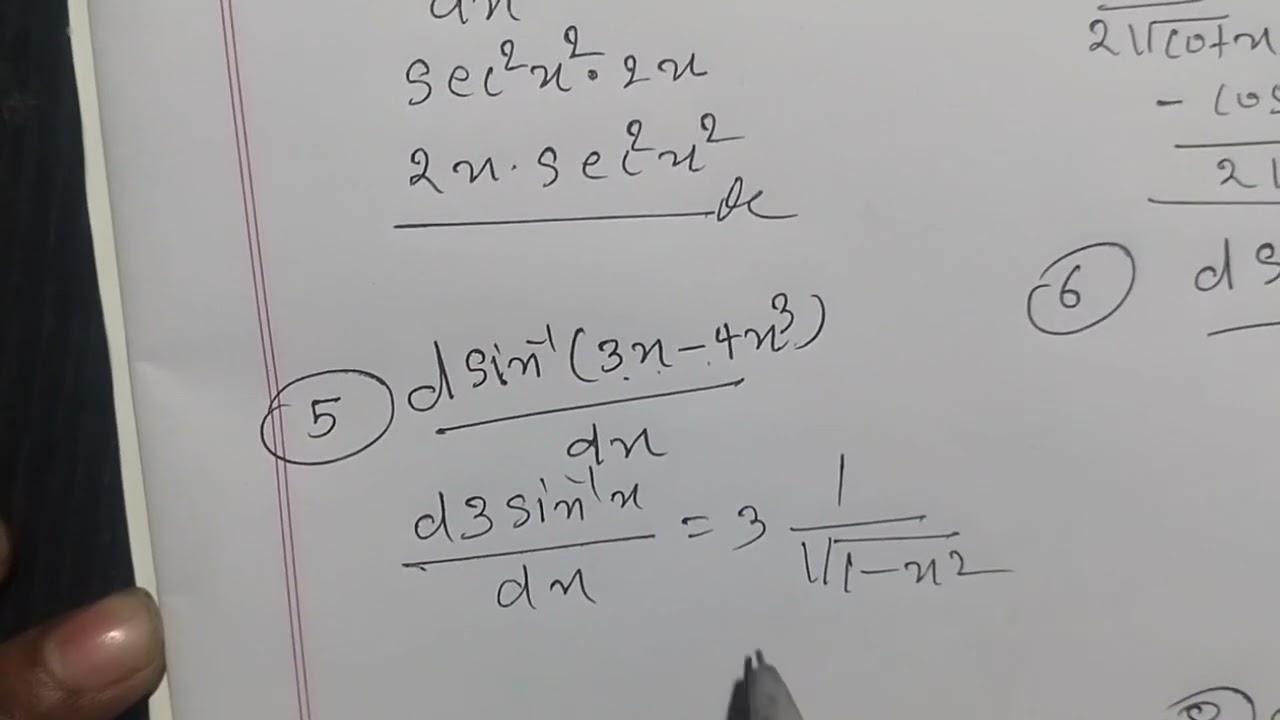 dx
sec²x²·2x
2x·sec²x²
5
d sin⁻¹(3x-4x³)
dx
d3 sin⁻¹x = 3 1
dx √1-x²
2√cotx
- cos
2√
6
d s